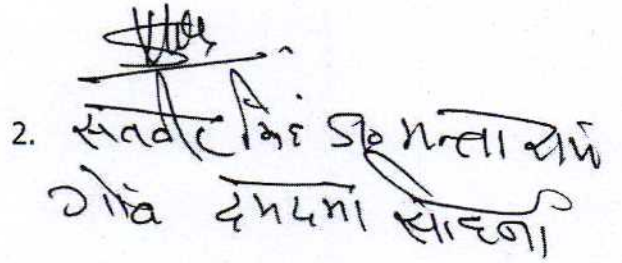 2. सतवीर सिंह S/o मन्सा राम
गाँव दमदमा सोहना